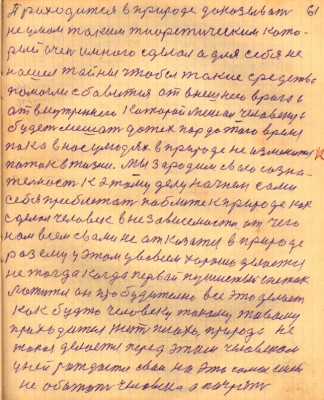 61
Приходится в природе доказывать
не умом таким тиоретическим кото-
рый очен много сделал а для себя не
нашел тайны чтобы такие средства
помогли сбавится от внешнего врага и
от внутреннего который мешал человеку и
будет мешат до тех пор до этого время
пока в нас у людях в природе не изменится
поток в жизни. Мы зародим свою созна-
телност к этому делу начнем сами
себя приближат поближе к природе как
сделал человек в независемости от чего
нам всем с вами не отказатся в природе
разему у этом условем хорошо делается
не тогда когда первай пушистый снежок
ложится он пробудително все это делает
как будто человеку такому живому
приходится жит плохо природа не
такая делается перед этим человеком
у ней рождается свои на это самое силы
не обежат человека а научит